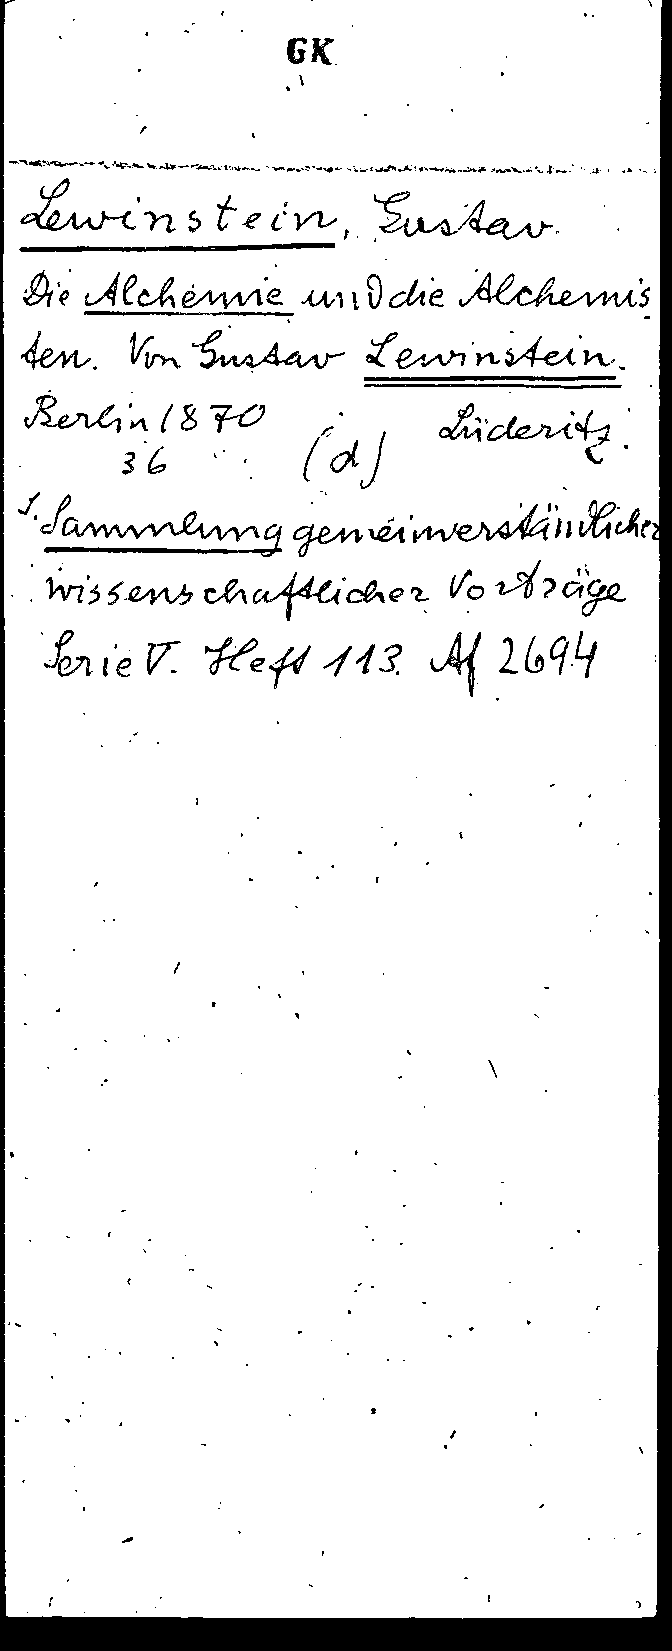 GK
Lewinstein, Gustav.
Die Alchemie und die Alchemis
ten. Von Gustav Lewinstein.
Berlin 1870 Lüderitz.
36 (d)
s. Sammlung gemeinverständlicher
wissenschaftlicher Vorträge
Serie V. Heft 113. Af 2694